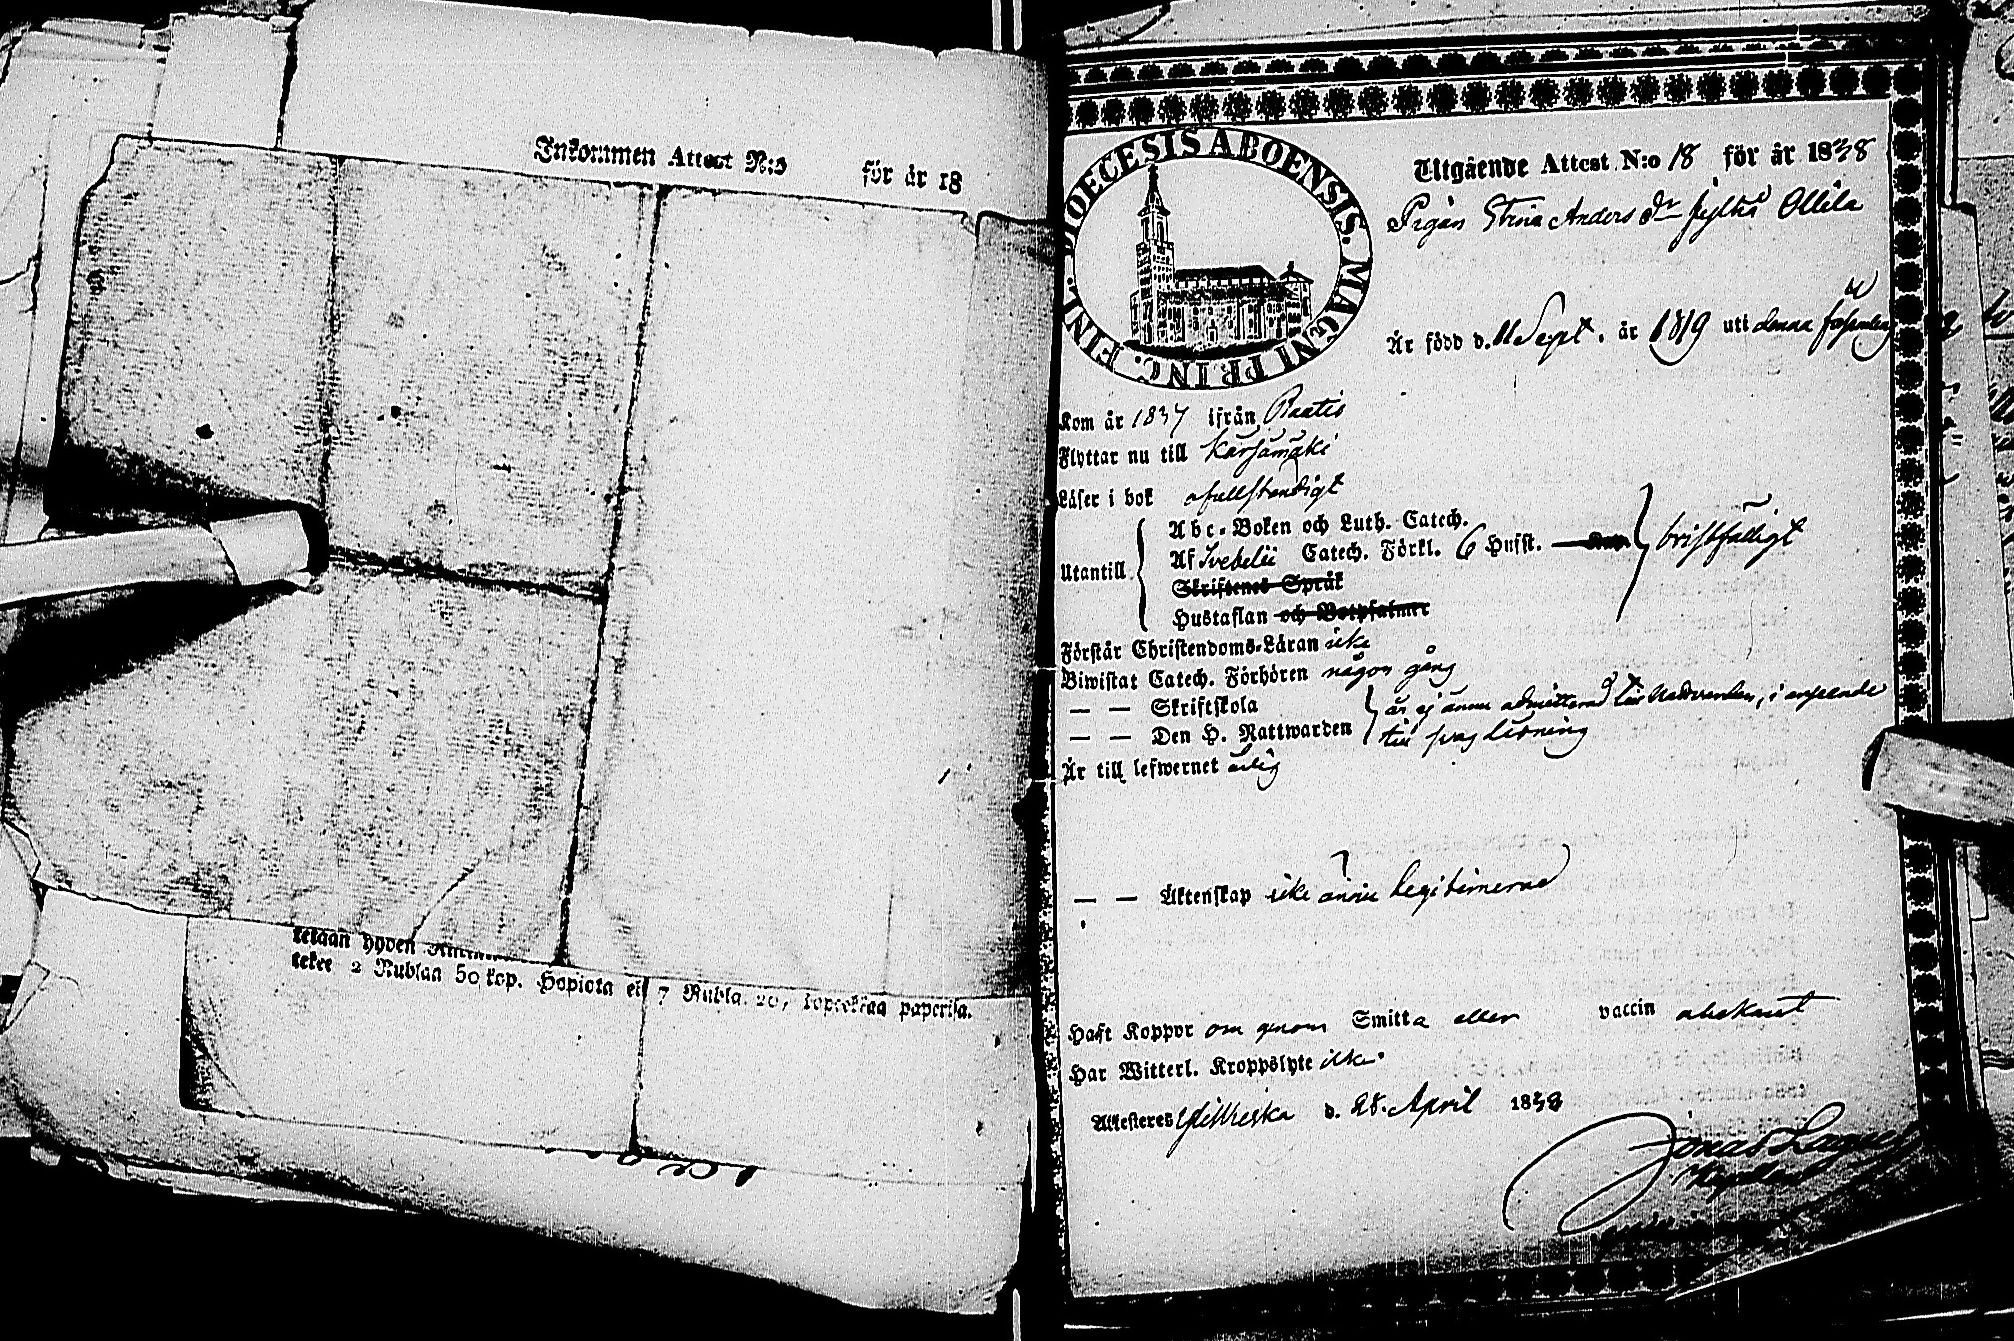 Inkommen Attest N:o för år 18
tekaan hywen
tekee 2 Rublaa 50 kop. Hopiota eli 7 Rubla. 20, kopeekkaa paperisa.
DIOECESIS ABOENSIS. MAGNI PRINC. FINL.
Utgående Attest N:o 18 för år 1838
Pigan Stina Anders dr Ollila
Är född d. 11 Sept. år 1819 uti denna
Kom år 1837 ifrån Raatis
Flyttar nu till Kärsämäki
Läser i bok ofullständigt
Utantill
Abc-Boken och Luth. Catech.
Af Svebelii Catech. Förkl. 6 Hufst. bristfälligt
Skriftenes Språk
Hustaflan och Botpsalmer
Förstår Christendoms-Läran icke
Biwistat Catech. Förhören någon gång
— — Skriftskola är ej ännu admitterad till Nattvarden, i anseende
— — Den H. Nattwarden till svag läsning
Är till lefwernet ärlig
— — Äktenskap icke ännu legitimerad
Haft Koppor om genom Smitta eller vaccin obekant
Har Witterl. Kroppslyte icke
Attesteres Ylivieska d. 28. April 1838
Jonas Lagus